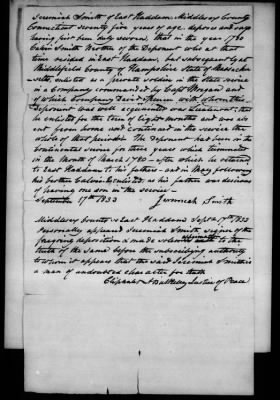 Jeremiah Smith of East Haddam Middlesex County
Connecticut seventy five years of age deposes and says
having first been duly sworn, that in the year 1780
Calvin Smith Brother of the Deponent who at that
time resided in East Haddam, but subsequently at
County of Hampshire State of Massachu-
setts, enlisted as a private soldier in the State service
in a Company commanded by Capt
of which Company Spencer with whom the
Deponent was well acquainted was Lieutenant that
he enlisted for the term of Eight months and was ab-
sent from home and continued in the service the
whole of that period. The Deponent had been in the
Continental service for three years which terminated
in the Month of March 1780 - after which he returned
to East Haddam to his fathers - and in May following
his brother Calvin enlisted as his father was desirous
of having one son in the service -
September 17th 1833 Jeremiah Smith
Middlesex County ss East Haddam Sept. 17th 1833
Personally appeared Jeremiah Smith signer of the
foregoing deposition & made solemn to the
truth of the same before the subscribing authority
to whom it appears that the said Jeremiah Smith is
a man of undoubted character for truth
Eliphalet A Bulkeley Justice of Peace